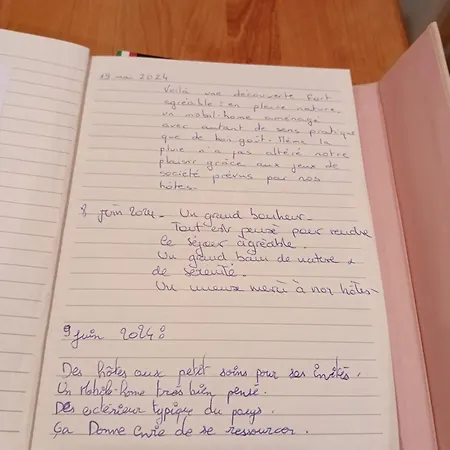 19 mai 2024
Voilà une découverte fort
agréable : en pleine nature.
un mobil-home aménagé
avec autant de sens pratique
que de bon goût. Même la
pluie n'a pas altéré notre
plaisir grâce aux jeux de
société prévus par nos
hôtes.
8 juin 2024. Un grand bonheur.
Tout est pensé pour rendre
le séjour agréable.
Un grand bain de nature &
de sérénité.
Un immense merci à nos hôtes
9 juin 2024 :
Des hôtes aux petit soins pour ses invités.
Un Mobile-home très bien pensé.
Des extérieur typique du pays.
ça Donne envie de se ressourcer.